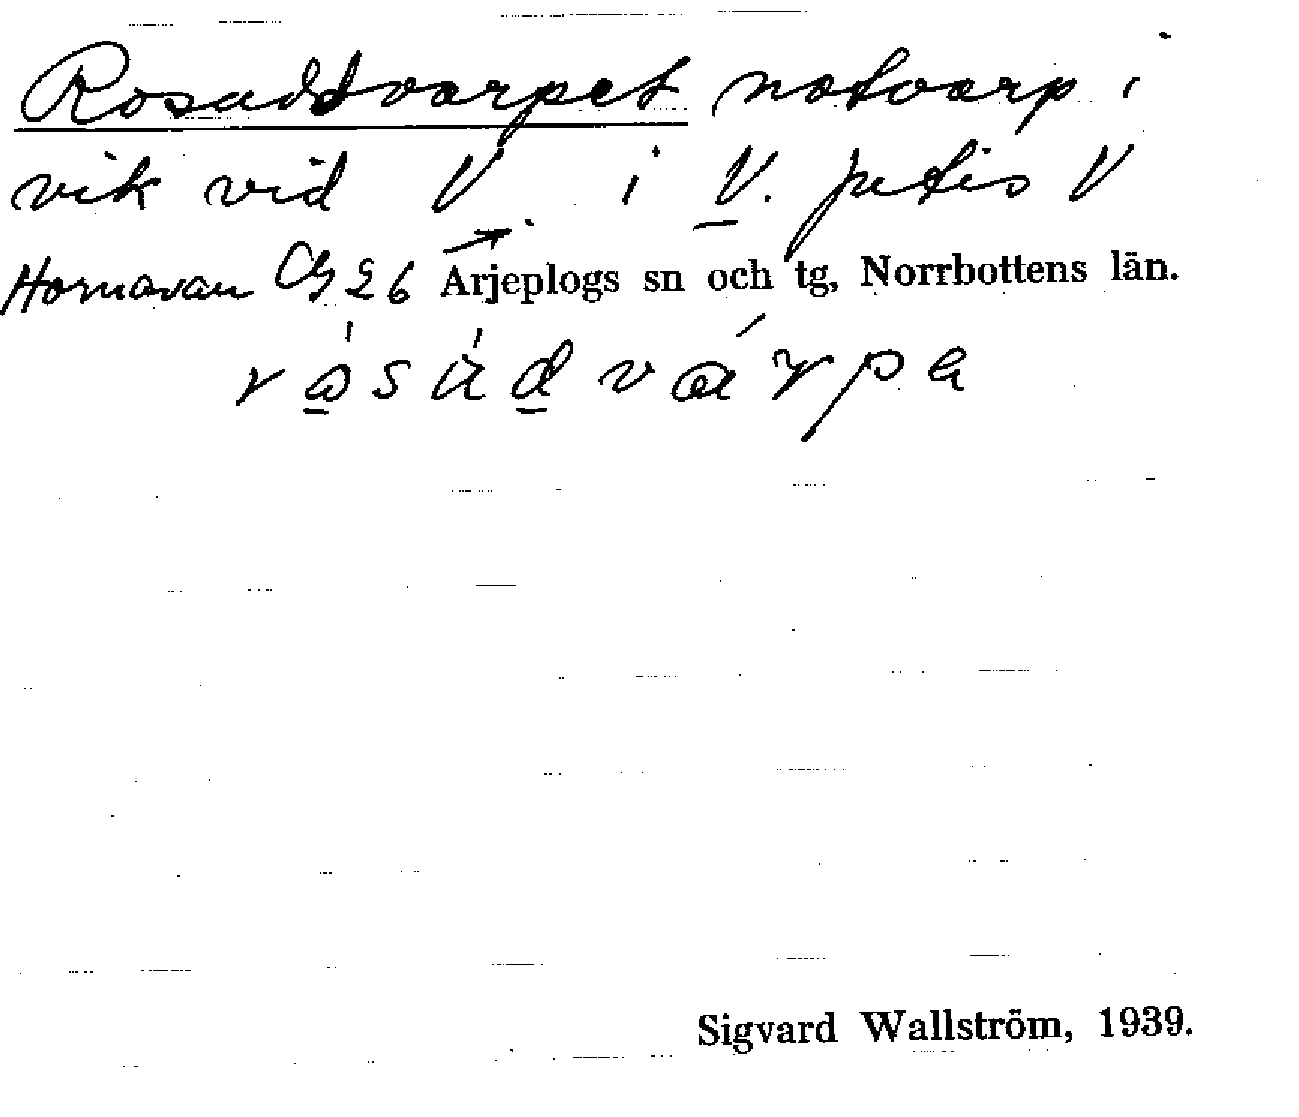 Rosadvarpet notvarp i
vik vid V i V. Jutis V
Hornavan Arjeplogs sn och tg, Norrbottens län.
råsàdvárpa
Sigvard Wallström, 1939.